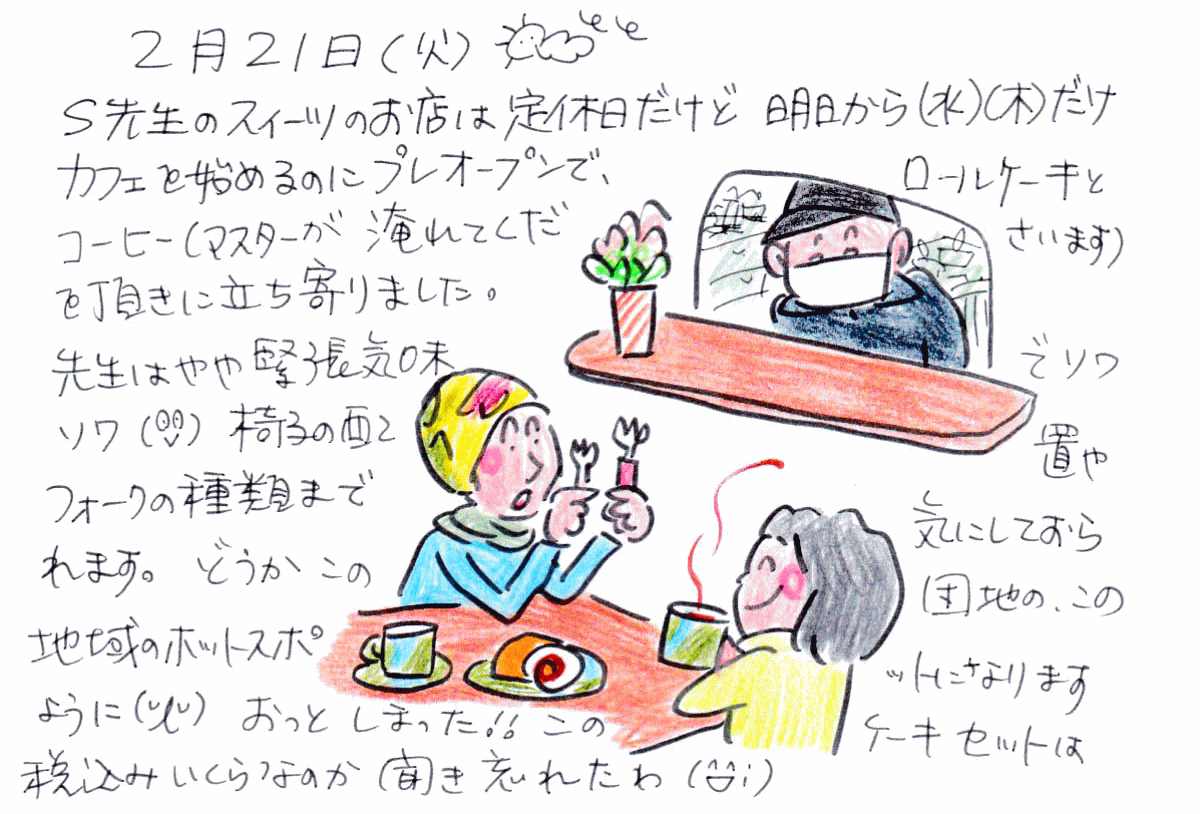 2月21日(火)
S先生のスイーツのお店は定休日だけど 明日から(水)(木)だけ
カフェを始めるのにプレオープンで、 ロールケーキと
コーヒー(マスターが淹れてくだ さいます)
を頂きに立ち寄りました。
先生はやや緊張気味 でソワ
ソワ( ) 椅子の配 置や
フォークの種類まで 気にしておら
れます。 どうか この 団地の、この
地域のホットスポ ットになります
ように( ) おっと しまった!! この ケーキ セットは
税込み いくらなのか 聞き 忘れたわ( )